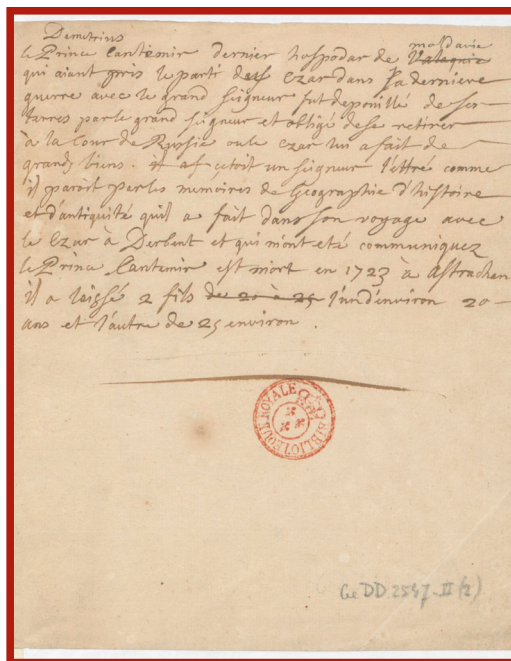 Demetrius
le Prince Cantemir dernier hospodar de Valaquie moldavie
qui aiant pris le parti du Czar dans sa derniere
guerre avec le grand seigneur fut depouillé de ses
terres par le grand seigneur et obligé de se retirer
à la Cour de Russie ou le Czar lui a fait de
grands biens. il etoit un seigneur lettré comme
il paroit par les memoires de Geographie d'histoire
et d'antiquité qu'il a fait dans son voyage avec
le Czar à Derbent et qui m'ont eté communiquez
le Prince Cantemir est mort en 1723 à Astrachan
il a laissé 2 fils de 20 à 25 l'un d'environ 20
ans et l'autre de 25 environ.
BIBLIOTEQUE ROYALE
Ge DD 2547-II (2)